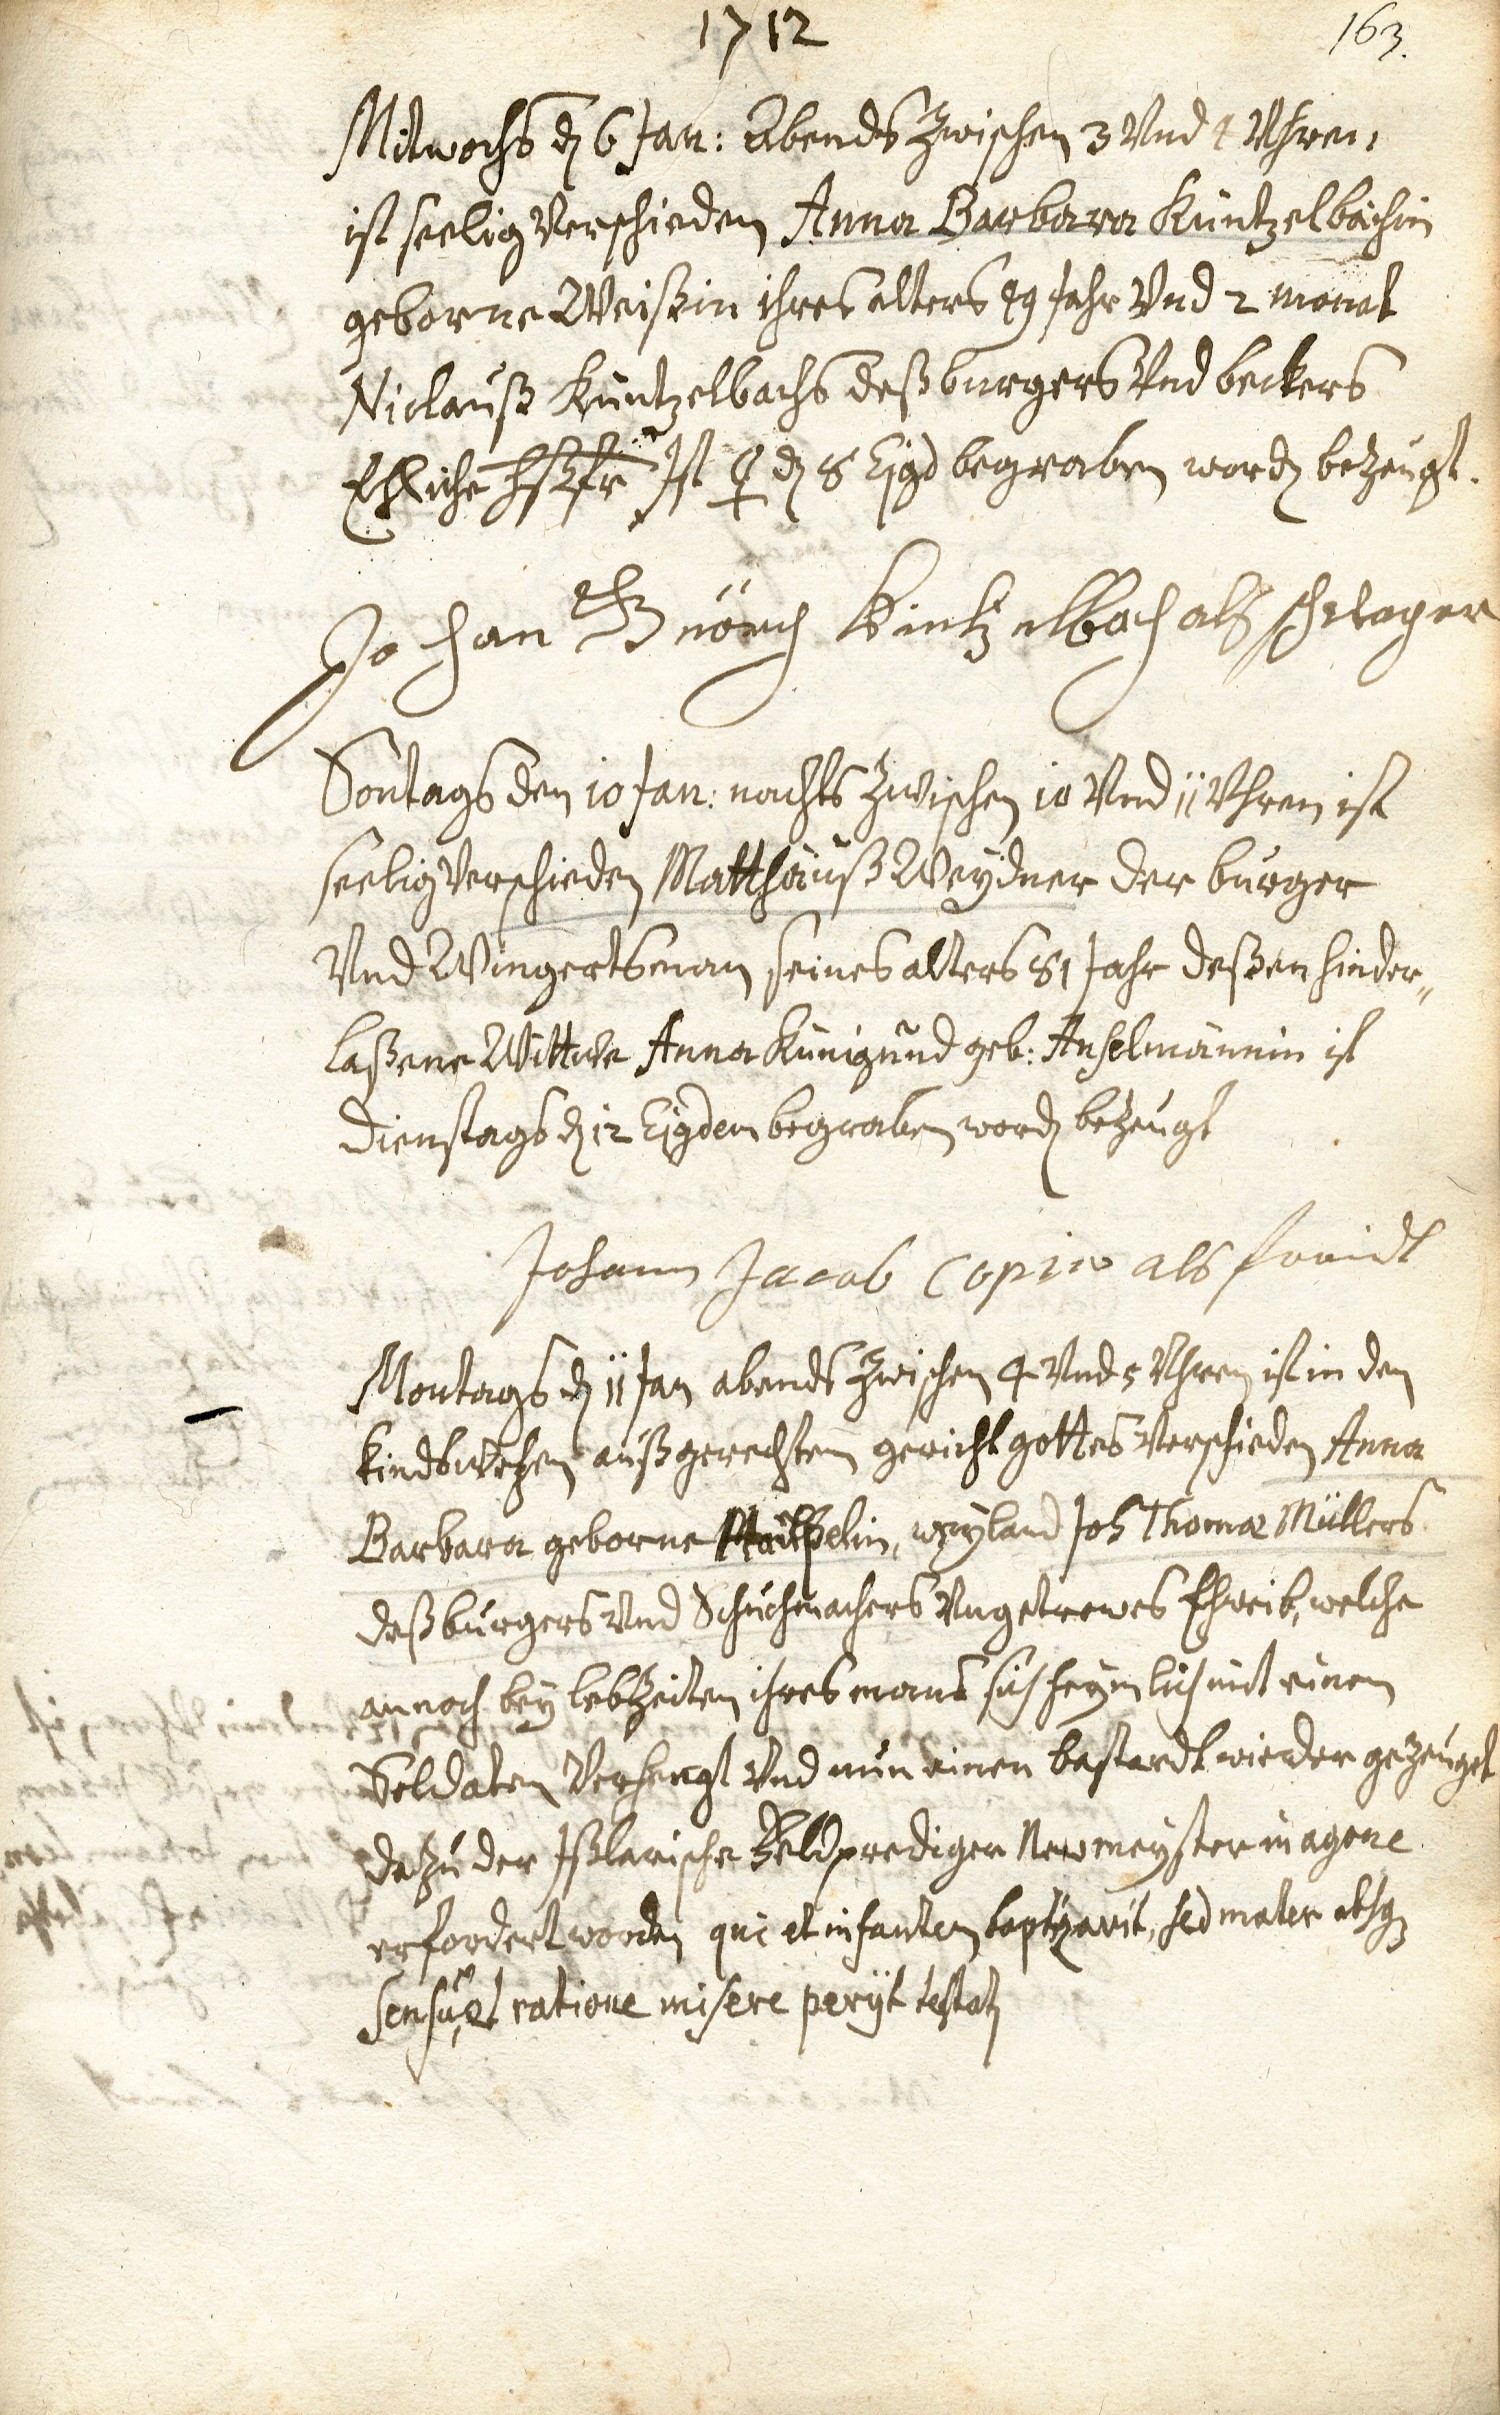 1712
163.
Mitwochs dñ 6 Jan: Abends zwischen 3 Vnd 4 Vhren,
ist seelig Verschieden Anna Barbara Küntzelbächin
geborne Weißin ihres alters 49 Jahr Vnd 2 monat
Niclauß Küntzelbachs deß burgers Vnd beckers
Ehliche hßfr Ist ♀ dñ 8 Ejgd begraben word bezeugt.
Johan Kintzelbach alß schwager
Sontags den 10 Jan: nachts zwischen 10 Vnd 11 Vhren ist
seelig Verschieden Matthäuß Weydner der burger
Vnd Wingertsman seines alters 81 Jahr deßen hinder„
laßene Wittwe Anna Künigund geb: Anselmännin ist
Dienstags dñ 12 Ejgdem begraben word bezeugt
Johann Jacob Copiw als freindt
Montags dñ 11 Jan abends zwischen 4 Vnd 5 Vhren ist in den
kindswehen auß gerechtem gericht gottes Verschieden Anna
Barbara geborne weyland Joh Thomæ Müllers
deß burgers Vnd Schuchmachers Vngetrewes Eheweib, welche
annoch bey lebzeiten ihres mans sich heymlich mit einem
Soldaten Verhengt Vnd nun einen bastardt wieder gezeuget
dazu der Ißlarische Feldprediger Newmeyster in agone
erfordert worden qui et infantem baptizavit, sed mater absq
sensu et ratione misere perijt testat